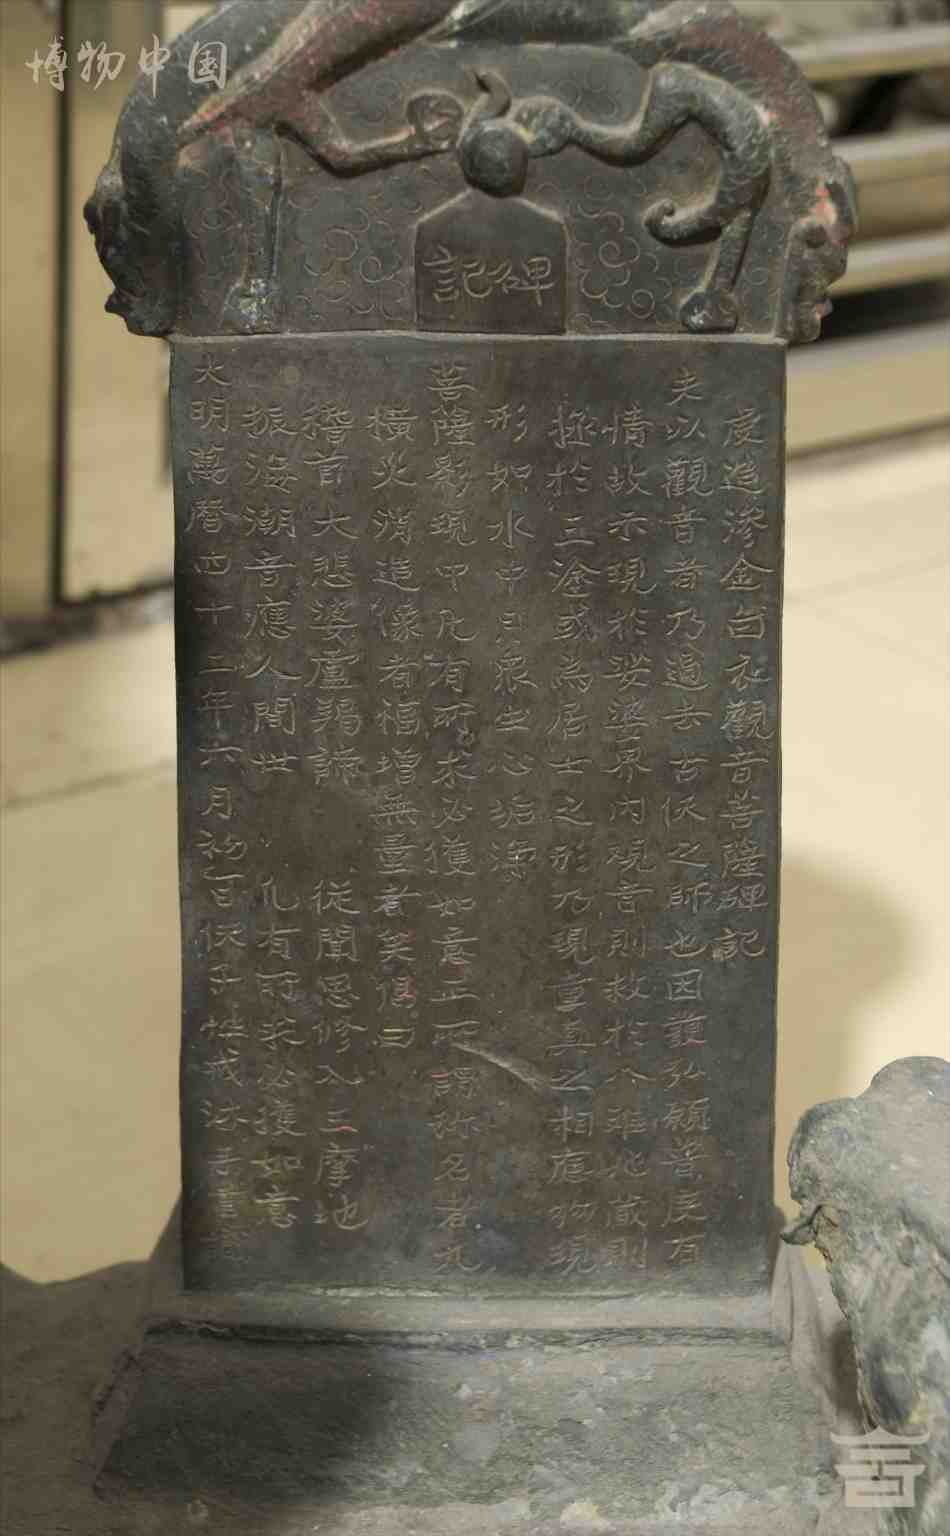 博物中国
碑記
虔造滲金白衣觀音菩薩碑記
夫以觀音者乃過去古佛之師也因發弘願普度有
情故示現於娑婆界内觀音則救於八難地藏則
拯於三塗或為居士之形乃現童真之相應物現
形如水中月衆生心垢淨
菩薩影現中凡有所求必獲如意正所謂称名者九
橫火消造像者福增無量者矣偈曰
稽首大悲婆盧羯諦 從聞思修入三摩地
振海潮音應人間世 凡有所求必獲如意
大明萬曆四十二年六月初一日佛子性戒沐手書